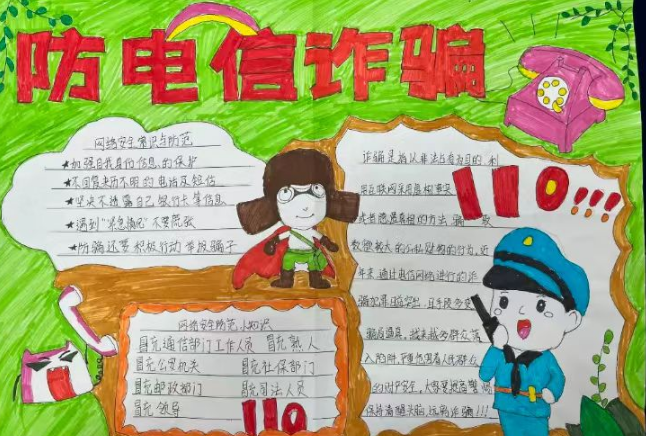 防电信诈骗
网络安全常识与防范
★加强自我身份信息的保护
★不回复来历不明的电话及短信
★坚决不透露自己银行卡等信息
★遇到"紧急情况"不要慌张
★防骗还要积极行动 举报骗子
网络安全防范小知识
冒充通信部门工作人员 冒充熟人
冒充公安机关 冒充社保部门
冒充邮政部门 冒充司法人员
冒充领导
110
诈骗是指以非法占有为目的,利
用互联网采用虚构事实
110!!!
或者隐瞒真相的方法,骗 数
数额较大的公私财物的行为,近
年来,通过电信网络进行的诈
骗犯罪日益突出,且手段多变
骗局逼真,越来越多群众落
入陷阱,严重危害着人民群众
的财产安全,大家要提高警惕
保持清醒头脑,远离诈骗!!!